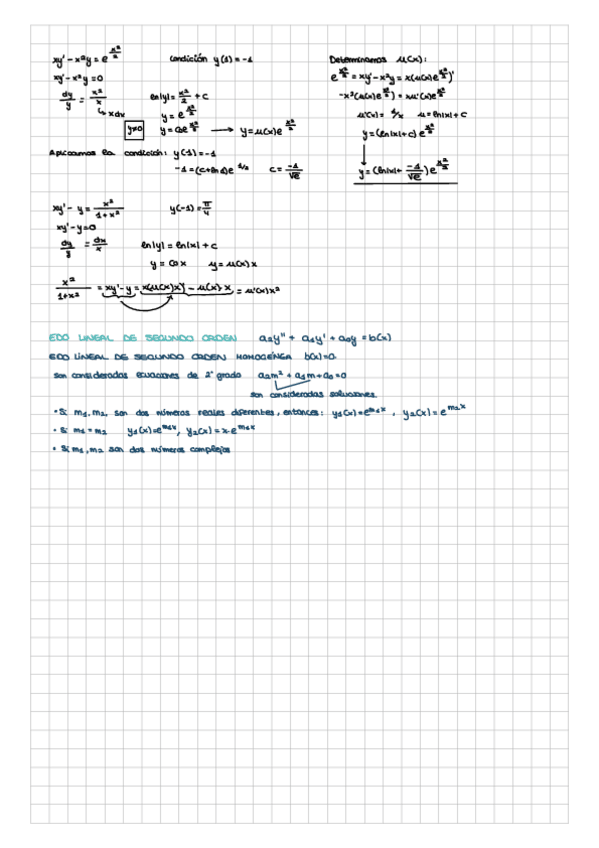 xy' - x²y = e^(x²/2)    Condición y(1) = -1    Determinamos u(x):
xy' - x²y = 0    e^(x²/2) = xy' - x²y = x(u(x)e^(x²/2))'
dy/y = x²/x    ln|y| = x²/2 + c    -x²(u(x)e^(x²/2)) = xu'(x)e^(x²/2)
↳ x dx    y = e^(x²/2)    u'(x) = 1/x    u = ln|x| + c
y≠0    y = C₀e^(x²/2) → y = u(x)e^(x²/2)    y = (ln|x| + c) e^(x²/2)
Aplicamos la condición: y(1) = -1
-1 = (c + ln 1) e^(1/2)    c = -1/√e    y = (ln|x| + -1/√e) e^(x²/2)
xy' - y = x²/(1+x²)    y(-1) = π/4
xy' - y = 0
dy/y = dx/x    ln|y| = ln|x| + c
y = C₀x    y = u(x) x
x²/(1+x²) = xy' - y = x(u(x)x)' - u(x) x = u'(x) x²
EDO LINEAL DE SEGUNDO ORDEN    a₂y'' + a₁y' + a₀y = b(x)
EDO LINEAL DE SEGUNDO ORDEN HOMOGÉNEA b(x)=0
son consideradas ecuaciones de 2º grado    a₂m² + a₁m + a₀ = 0
son consideradas soluciones.
• Si m₁, m₂, son dos números reales diferentes, entonces: y₁(x) = e^(m₁x), y₂(x) = e^(m₂x)
• Si m₁ = m₂    y₁(x) = e^(m₁x), y₂(x) = x·e^(m₁x)
• Si m₁, m₂ son dos números complejos